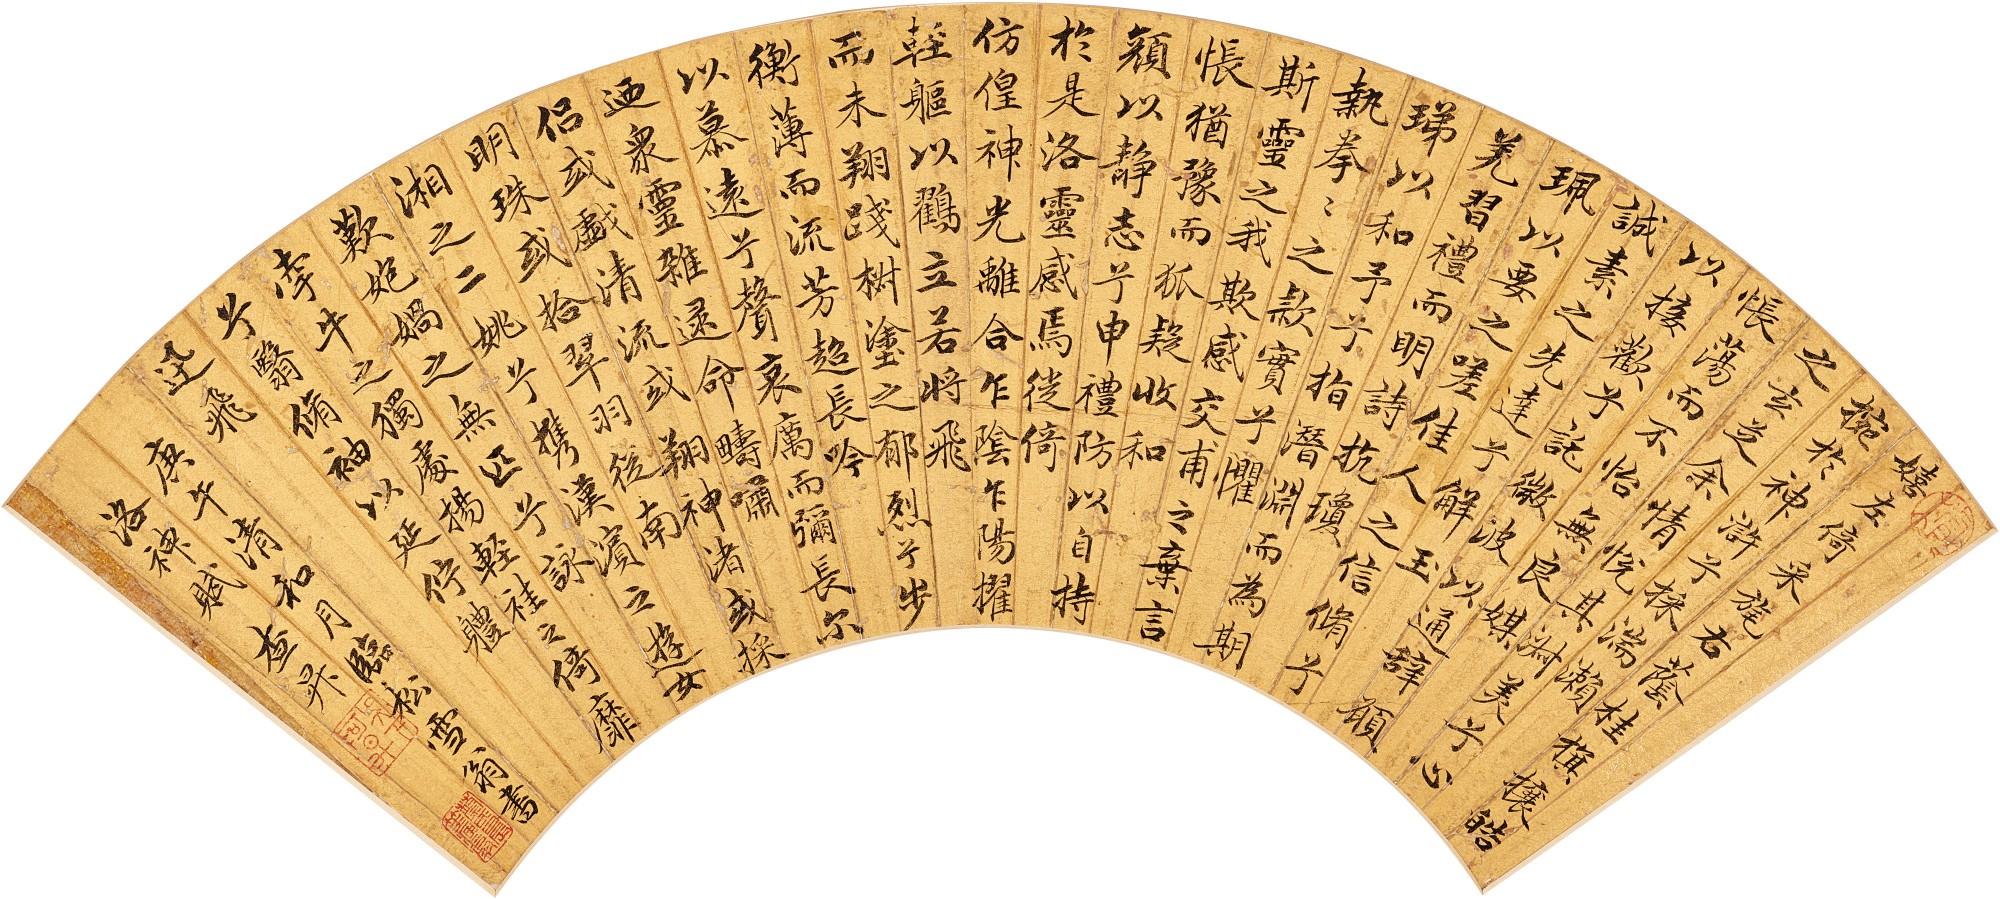 嬉左倚采旄右蔭桂旗攘皓
捥於神滸兮採湍瀨
之玄芝余情悅其淑美兮心
悵蕩而不怡無良媒
以接歡兮託微波以通辭願
誠素之先達兮解玉
珮以要之嗟佳人之信脩兮
羌習禮而明詩抗瓊
珶以和予兮指潛淵而為期
執拳々之款實兮懼
斯靈之我欺感交甫之棄言
悵猶豫而狐疑收和
顏以靜志兮申禮防以自持
於是洛靈感焉徙倚
仿偟神光離合乍陰乍陽擢
輕軀以鶴立若將飛
而未翔踐樹塗之郁烈兮步
衡薄而流芳超長吟
以慕遠兮聲哀厲而彌長尔
迺眾靈雜遝命疇嘯
侶或戲清流或翔神渚或採
明珠或拾翠羽從南
湘之二姚兮攜漢濱之遊女
歎匏媧之無匹兮詠
牽牛之獨處揚輕袿之倚靡
兮翳脩袖以延佇體
迅飛
庚午清和月臨松雪翁書
洛神賦 查昇